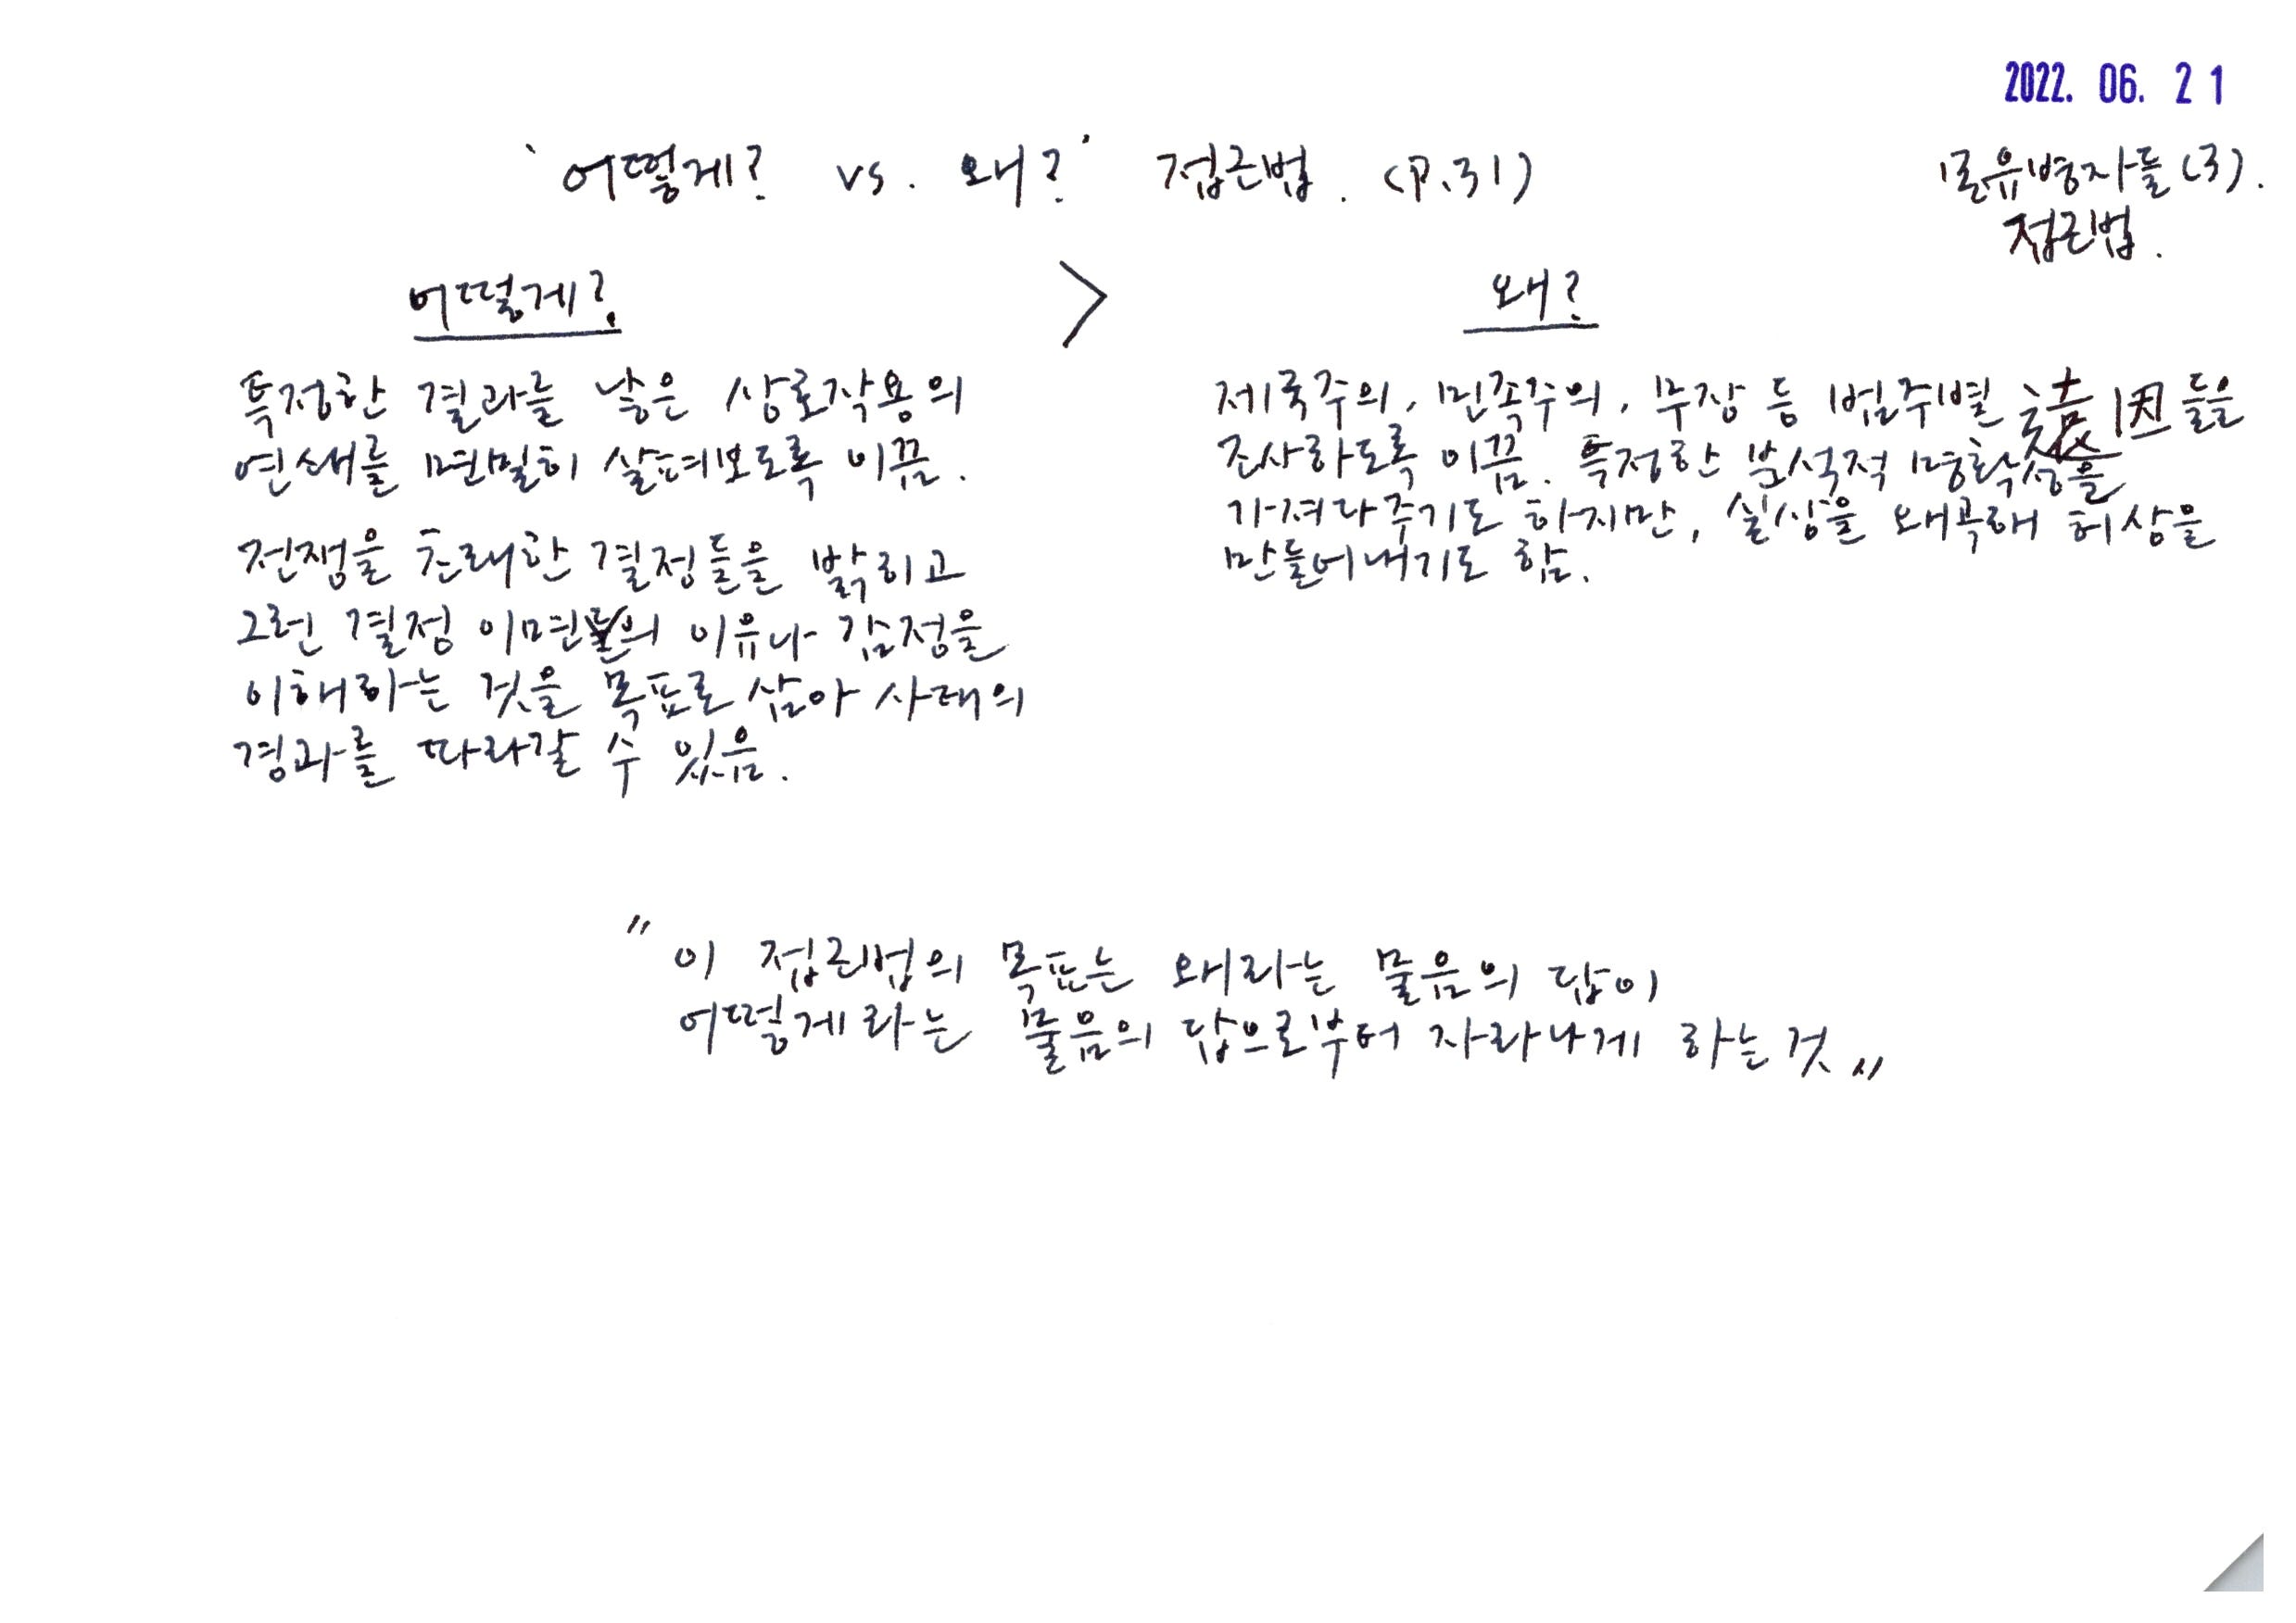 2022. 06. 21
'어떻게? vs. 왜?' 접근법. (P.31)
몽유병자들(3).
접근법.
어떻게? > 왜?
특정한 결과를 낳은 상호작용의
연쇄를 면밀히 살펴보도록 이끔.
전쟁을 초래한 결정들을 밝히고
그런 결정 이면의 이유나 감정을
이해하는 것을 목표로 삼아 사태의
경과를 따라갈 수 있음.
제국주의, 민족주의, 무장 등 범주별 遠因들을
조사하도록 이끔. 특정한 분석적 명확성을
가져다주기도 하지만, 실상을 왜곡해 허상을
만들어내기도 함.
"이 접근법의 목표는 왜라는 물음의 답이
어떻게라는 물음의 답으로부터 자라나게 하는 것"